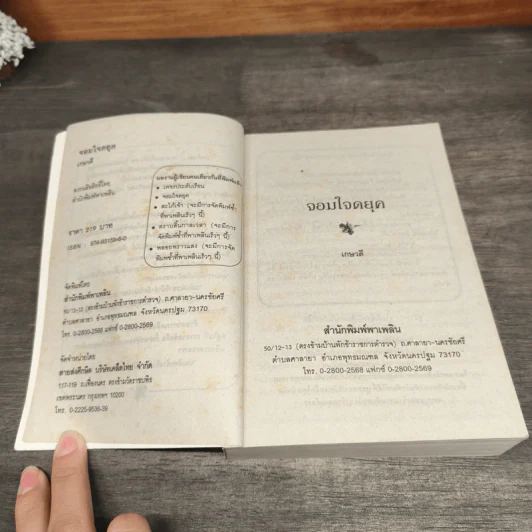 จอมใจดยุค
เกษวลี
สงวนลิขสิทธิ์โดย
สำนักพิมพ์พาเพลิน
ราคา 219 บาท
ISBN :
ผลงานผู้เขียนคนเดียวกันที่พิมพ์แล้ว
• เพชรประดับเรือน
• จอมใจดยุค
• ตะโก้เจ้า (จะมีการจัดพิมพ์ซ้ำ
ที่พาเพลินเร็วๆ นี้)
(จะมีการจัด
พิมพ์ซ้ำที่พาเพลินเร็วๆ นี้)
• พลอยพราวแสง (จะมีการจัด
พิมพ์ซ้ำที่พาเพลินเร็วๆ นี้)
จัดพิมพ์โดย
สำนักพิมพ์พาเพลิน
50/12-13 (ตรงข้ามบ้านพักข้าราชการตำรวจ) ถ.ศาลายา-นครชัยศรี
ตำบลศาลายา อำเภอพุทธมณฑล จังหวัดนครปฐม 73170
โทร. 0-2800-2568 แฟกซ์ 0-2800-2569
จัดจำหน่ายโดย
สายส่งศึกษิต บริษัทเคล็ดไทย จำกัด
117-119 ถ.เฟื่องนคร ตรงข้ามวัดราชบพิธ
เขตพระนคร กรุงเทพฯ 10200
โทร. 0-2225-9536-39
จอมใจดยุค
เกษวลี
สำนักพิมพ์พาเพลิน
50/12-13 (ตรงข้ามบ้านพักข้าราชการตำรวจ) ถ.ศาลายา-นครชัยศรี
ตำบลศาลายา อำเภอพุทธมณฑล จังหวัดนครปฐม 73170
โทร. 0-2800-2568 แฟกซ์ 0-2800-2569